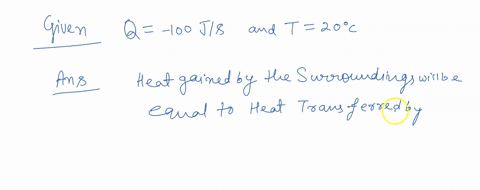 Given Q = -100 J/s and T = 20°C
Ans Heat gained by the Surroundings will be
equal to Heat Transferred by